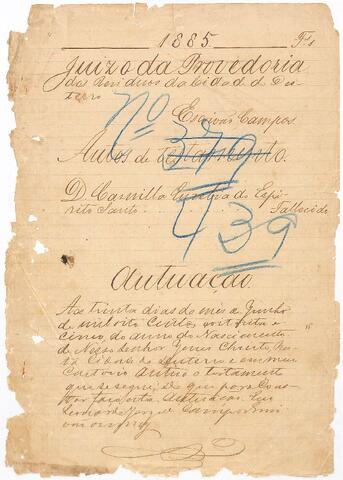 1885 Fs 1
Juizo da Provedoria
dos Residuos da Cidade de Des
terro
Nº 379
Escrivão Campos
Autos de testamento.
D. Camilla do Espi
rito Santo Fallecida
439
Autuação
Aos trinta dias do mes de Junho
de mil oito centos oitenta e
cinco, do anno do Nascimento
de Nosso Senhor Jesus Christo, nes
ta Cidade do Desterro e em meu
Cartorio autuo o testamento
que se segue; do que para cons
tar faço esta autuação. Eu
Campos
escrevy